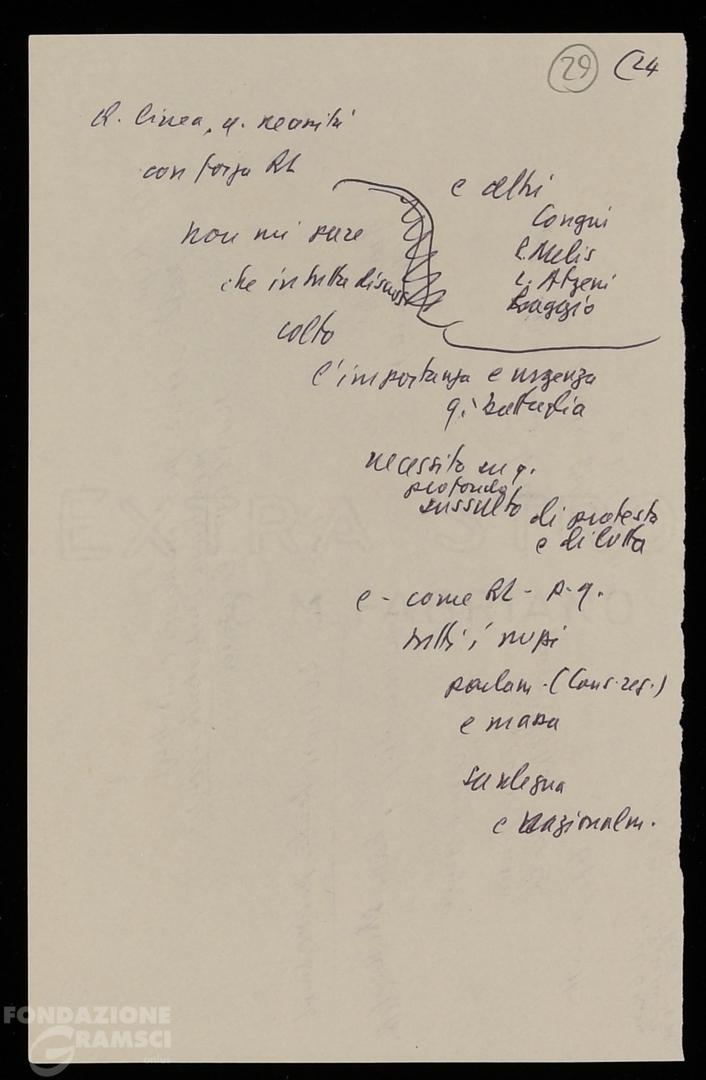 29 (24
q. linea, q. necessità
con forza RL
e altri
Congiu
P. Melis
L. Atzeni
Raggio
non mi pare
che in tutta discuss
colto
l'importanza e urgenza
q. battaglia
necessità su q.
profondo
sussulto di protesta
e di lotta
e - come RL - p. q.
tutti i
parlam. (Cons. reg.)
e massa
Sardegna
e nazionalm.
FONDAZIONE
GRAMSCI
onlus